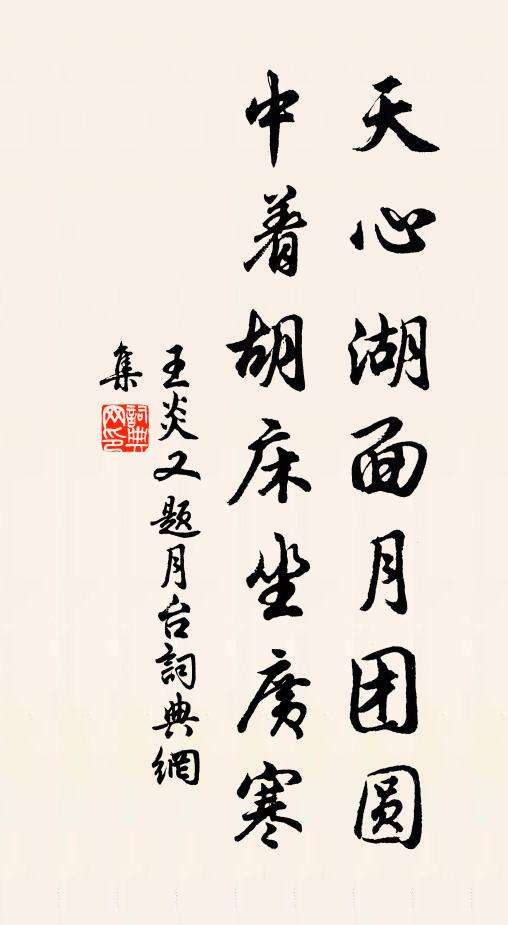 天心湖面月团圆
中着胡床坐廣寒
王炎又题月台詞典網
集
詞典
网印